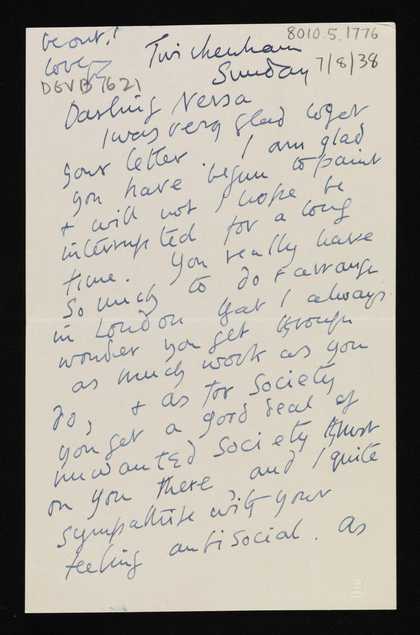 be out!
Love
Twickenham
8010.5.1776
Sunday
7/8/38
DGVB 1621
Darling Nessa
I was very glad to get
your letter. I am glad
you have begun to paint
& will not I hope be
interrupted for a long
time. You really have
so much to do & arrange
in London that I always
wonder you get through
as much work as you
do, & as for Society
you get a good deal of
unwanted Society thrust
on you there and I quite
sympathise with your
feeling antisocial. As